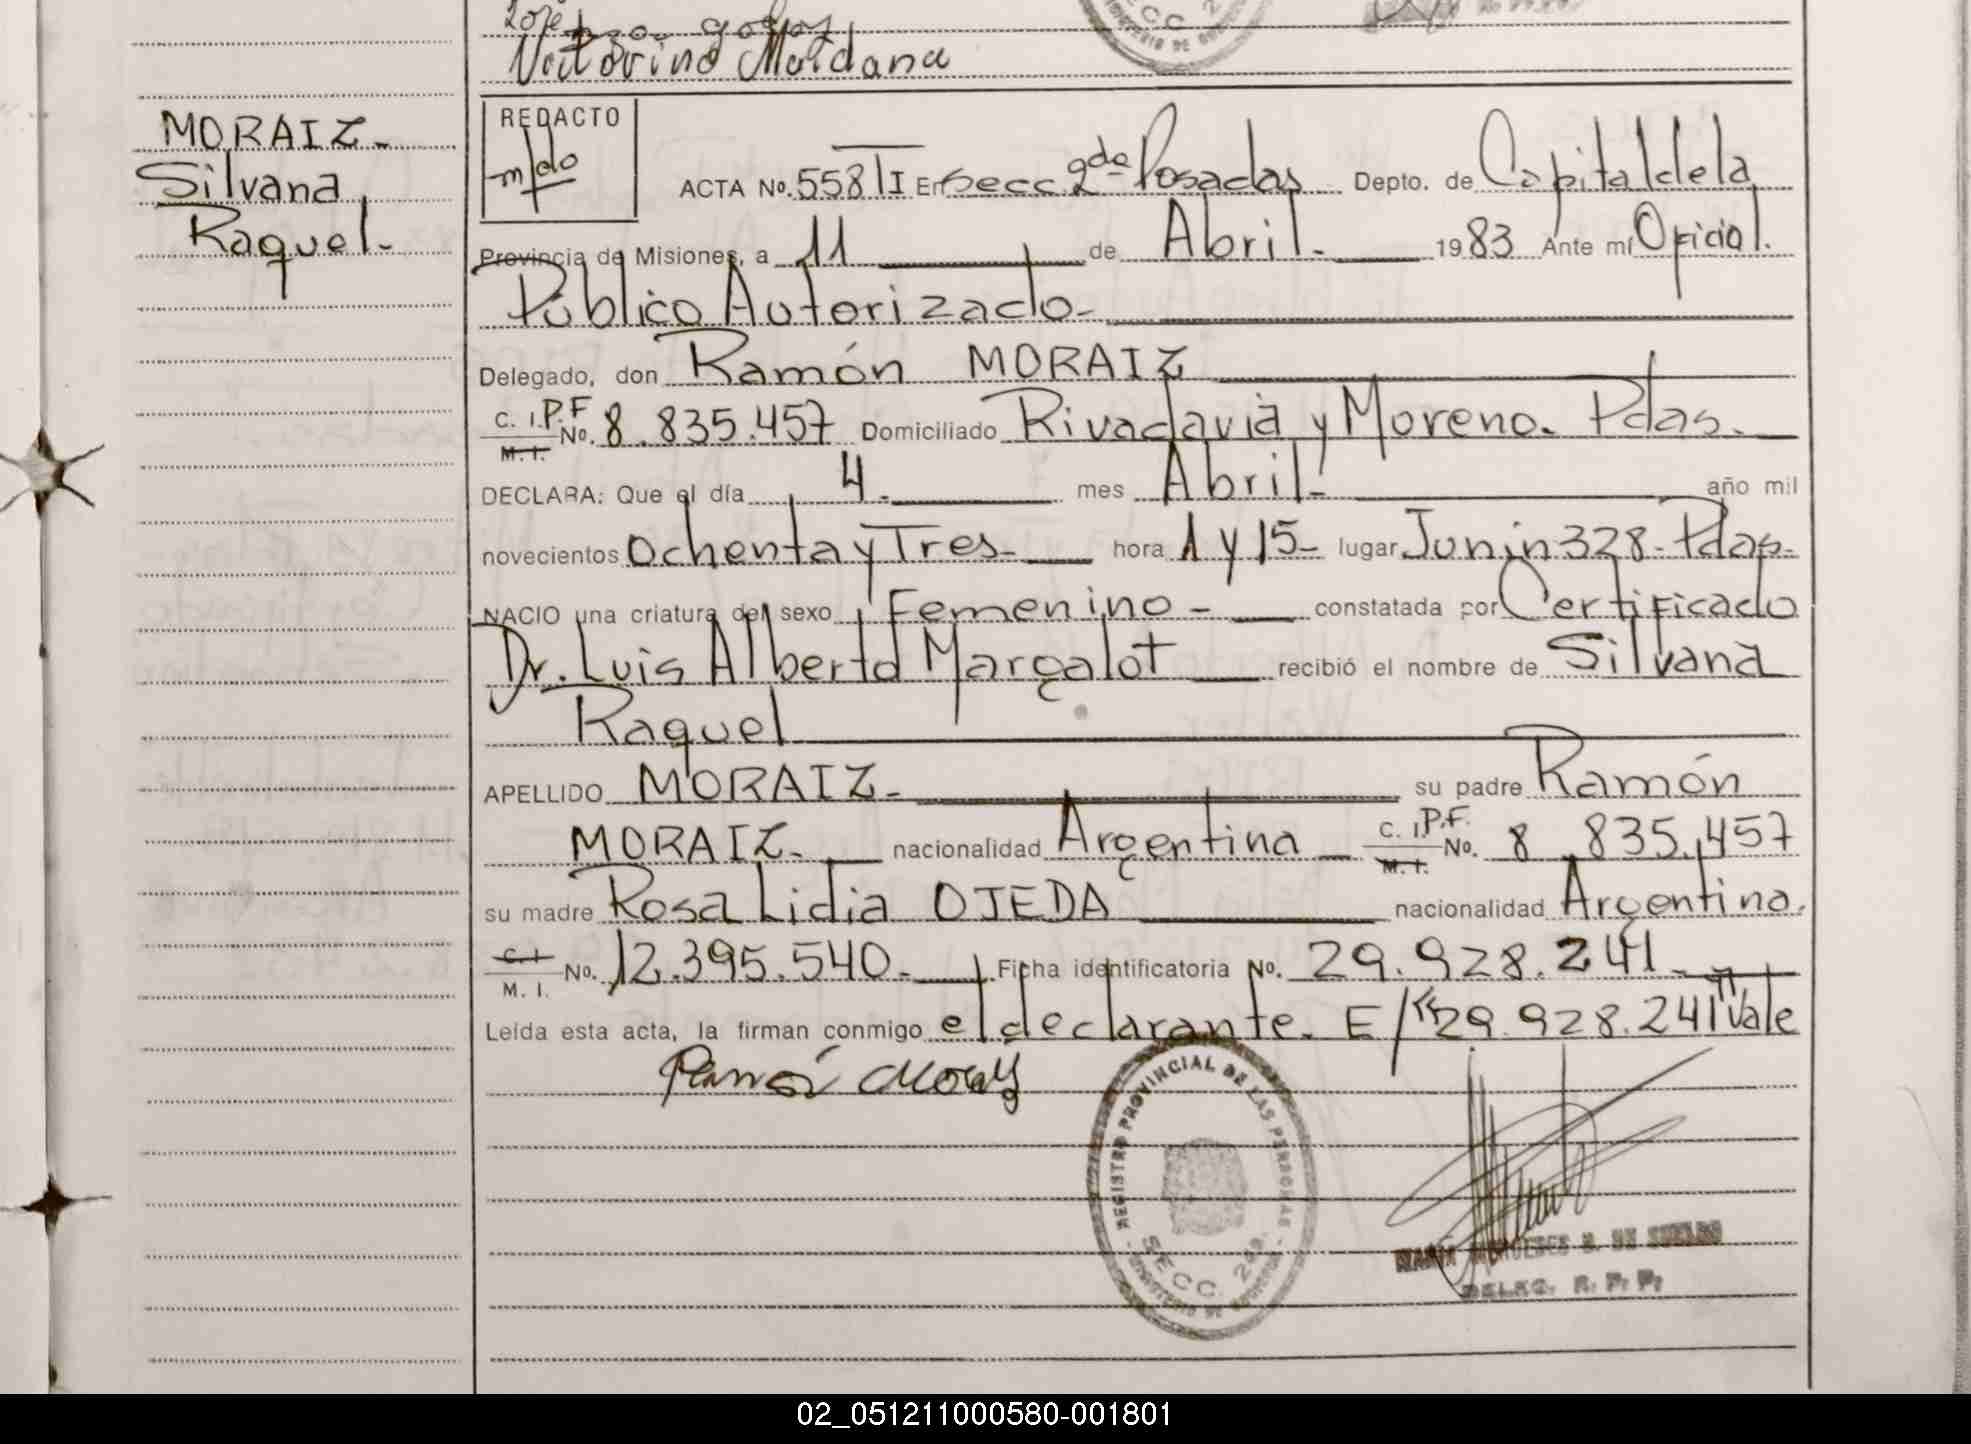 Vitorino Maidana
MORAIZ-
Silvana
Raquel-
REDACTO
ACTA No. 558 TI En Secc 2da Posadas Depto. de Capital de la
Provincia de Misiones, a 11 de Abril- 1983 Ante mí Oficial
Público Autorizado-
Delegado, don Ramón MORAIZ
C. I. P.F No. 8.835.457 Domiciliado Rivadavia y Moreno. Pdas.-
M. I.
DECLARA: Que el día 4.- mes Abril- año mil
novecientos Ochenta y Tres- hora 1 y 15- lugar Junin 328- Pdas-
NACIO una criatura del sexo Femenino- constatada por Certificado
Dr. Luis Alberto Margalot recibió el nombre de Silvana
Raquel
APELLIDO MORAIZ- su padre Ramón
MORAIZ- nacionalidad Argentina - C. I. P.F. No. 8.835.457
M. I.
su madre Rosa Lidia OJEDA nacionalidad Argentina.
C. I. No. 12.395.540.- Ficha identificatoria No. 29.928.241-
M. I.
Leída esta acta, la firman conmigo el declarante. E/"29.928.241" Vale
REGISTRO PROVINCIAL DE LAS PERSONAS
SECC. 2da.
MINISTERIO DE GOBIERNO
DELEG. R. P. P.
02_051211000580-001801